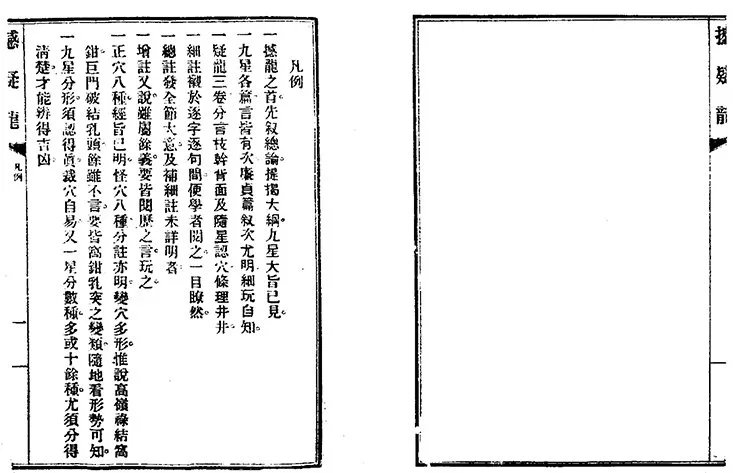 撼疑龍
凡例
一撼龍之首先敘總論提揭大綱九星大旨已見。
一九星各篇言皆有次廉貞篇敘次尤明細玩自知。
一疑龍三卷分言枝幹背面及隨星認穴條理井井。
一細註襯於逐字逐句間便學者閱之一目瞭然。
一總註發全節大意及補細註未詳明者
一增註又說雖屬餘義要皆閱歷之言玩之
一正穴八種經旨已明。怪穴八種分註亦明變穴多形。惟說高嶺祿結窩
鉗巨門破結乳頭餘雖不言。要皆窩鉗乳突之變類隨地看形勢可知。
一九星分形須認得眞裁穴自易又一星分數種。多或十餘種。尤須分得
清楚才能辨得吉凶
撼疑龍
凡例
一